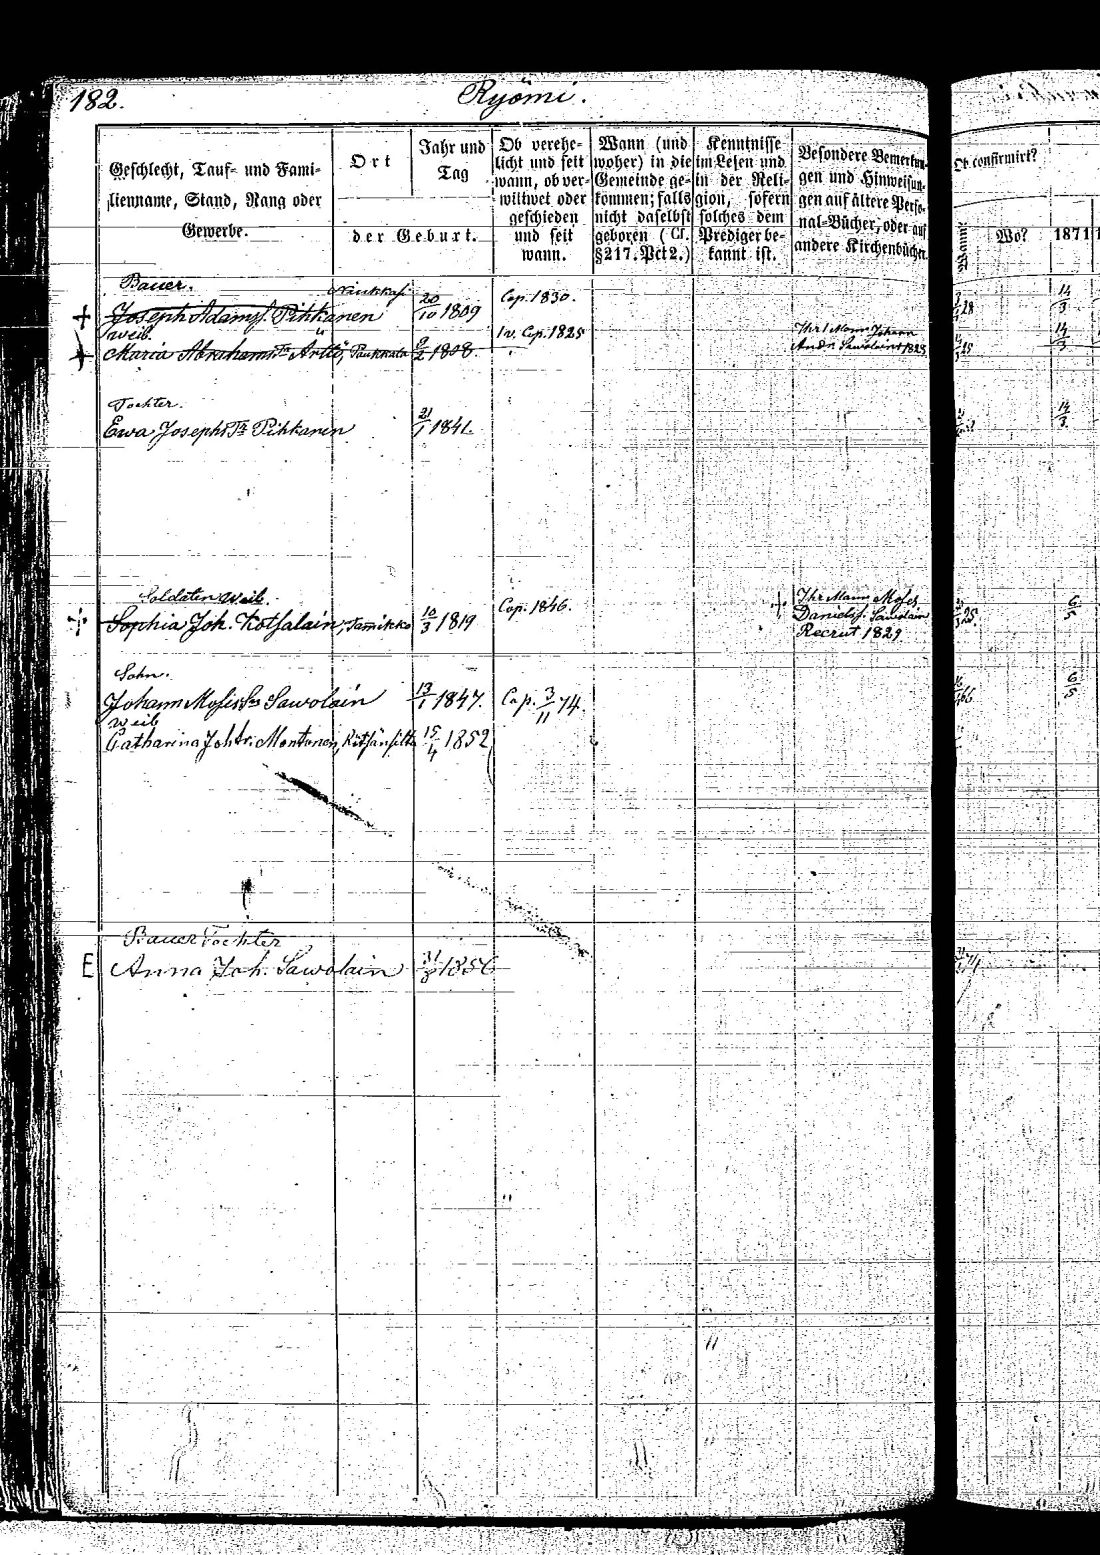 182.
Ryömi.
Geschlecht, Tauf- und Fami-
lienname, Stand, Rang oder
Gewerbe.
Ort
Jahr und
Tag
der Geburt.
Ob verehe-
licht und seit
wann, ob ver-
wittwet oder
geschieden
und seit
wann.
Wann (und
woher) in die
Gemeinde ge-
kommen; falls
nicht daselbst
geboren (Cf.
§217. Pct 2.)
Kenntnisse
im Lesen und
in der Reli-
gion, sofern
solches dem
Prediger be-
kannt ist.
Besondere Bemerkun-
gen und Hinweisun-
gen auf ältere Perso-
nal-Bücher, oder auf
andere Kirchenbücher.
Ob confirmirt?
Wann?
Wo?
1871
Bauer.
Joseph Adamsf. Pihkanen
20/10 1809
Cop. 1830.
14/3
Weib.
Maria Abrahams Tr Ärttö, Paukkala
9/2 1808.
1v. Cop. 1825
Ihr 1 Mann Johann
Andr. Sawolain 1825
14/3
Tochter.
Ewa Josephs Tr Pihkanen
21/1 1841.
14/3
Soldaten Weib.
Sophia Joh. Kotsalain, Tamikko
10/3 1819
Cop. 1846.
Ihr Mann Moses
Danielsf. Sawolain
Recrut 1829
6/5
Sohn.
Johann Mosis Sn Sawolain
13/1 1847.
Cop. 3/11 74.
6/5
Weib
Catharina Joh tr. Montonen,
15/4 1852
Bauer Tochter
E Anna Joh. Sawolain
1856